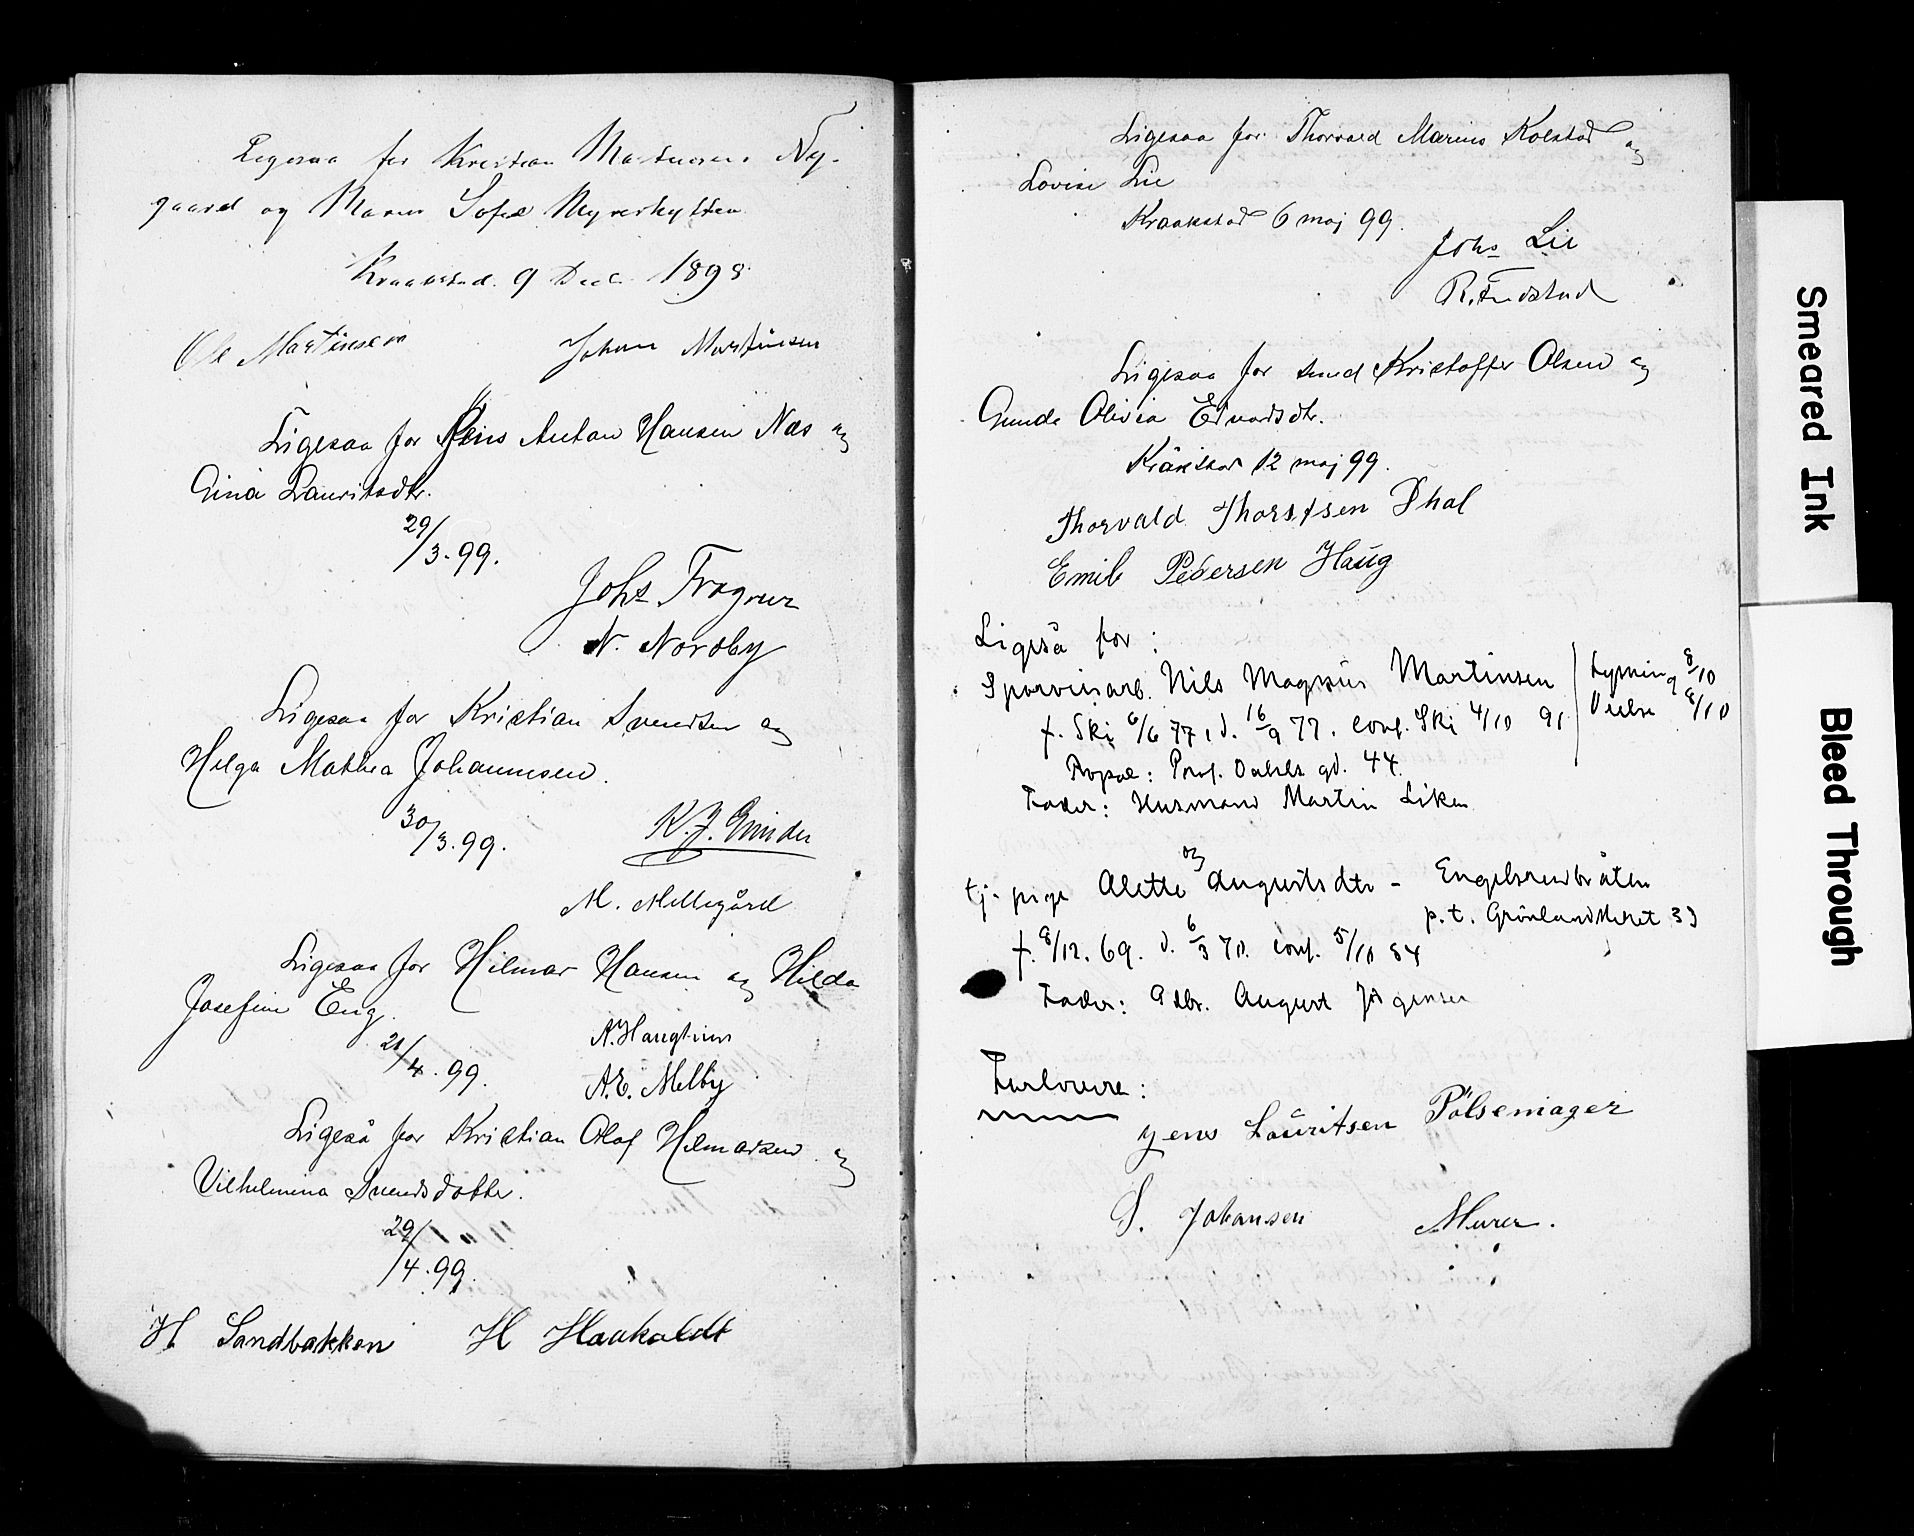 Ligesaa for Kristian Martinsen Ny-
gaard og Maren Sofie Myrerhytten
Kraakstad 9 Dec. 1898
Ole Martinsen Johan Martinsen
Ligesaa for Jens Anton Hansen Næs og
Gina Lauritsdtr.
29/3.99.
Johs Frogner
N. Nordby
Ligesaa for Kristian Svendsen og
Helga Mathea Johannesen.
30/3.99.
K. J. Grinder
M. Mellegård
Ligesaa for Hilmar Hansen og Hilda
Josefine Eng.
21/4.99.
A. Haugtun
A. E. Melby
Ligeså for Kristian Olaf Hilmarsen og
Vilhelmina Svendsdatter.
29/4.99.
H Sandbakken H Haakaldt
Ligesaa for Thorvald Marius Kolstad og
Lovise Lie
Kraakstad 6 maj 99.
Johs Lie
R. Fredstad
Ligesaa for smed Kristoffer Olsen og
Gunda Olivia Edvardsdtr.
Kråkstad 12 maj 99.
Thorvald Thorstsen Dhal
Emil Pedersen Haug
Ligeså for:
Sporveisarb. Nils Magnus Martinsen
Lysning 8/10
Vielse 8/10
f. Ski 6/6 77, d. 16/9 77. conf. Ski 4/10 91
Bopæl: Prof. Dahls gd. 44.
Fader: Husmand Martin
og
tj. pige Alette Augustsdtr - Engelsrudbråten
p.t. Grønlandsleret 39
f. 8/12. 69. d. 6/3 70. conf. 5/10 84
Fader: Gdbr. August Jørgensen
Forlovere:
Jens Lauritsen Pölsemager
S. Johansen Murer.
Smeared Ink
Bleed Through